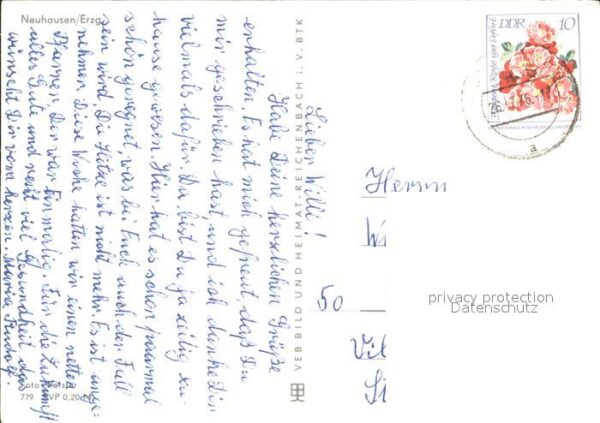 Neuhausen/Erzg.
Lieber Willi!
Habe Deine herzlichen Grüße
erhalten. Es hat mich gefreut, daß Du
mir geschrieben hast und ich danke Dir
vielmals dafür. Du bist Du ja zu
hause gewesen. Hier hat es schon
schön geregnet, was bei Euch auch der Fall
sein wird. Die Hitze ist nicht mehr. Es ist
nehmen. Diese Woche hatten wir einen netten
Pfarrer, Der war Einmalig. Für die Zukunft
alles Gute und recht viel Gesundheit
wünscht Dir vom herzen. Maria
779 VP 0,20
VEB BILD UND HEIMAT · REICHENBACH i. V. BTK
DDR 10
a
Herrn
W
50
Vil
St
privacy protection
Datenschutz